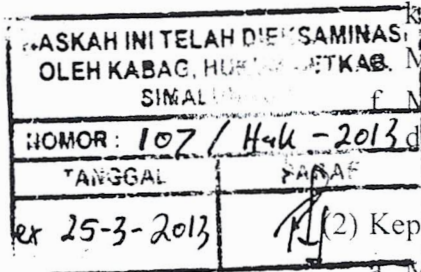 k
NASKAH INI TELAH DIEKSAMINASI
OLEH KABAG, HUKUM SETKAB. M
SIMALUNGUN f. M
NOMOR : 107 / Huk - 2013 d
TANGGAL PARAF
ex 25-3-2013 (2) Kep